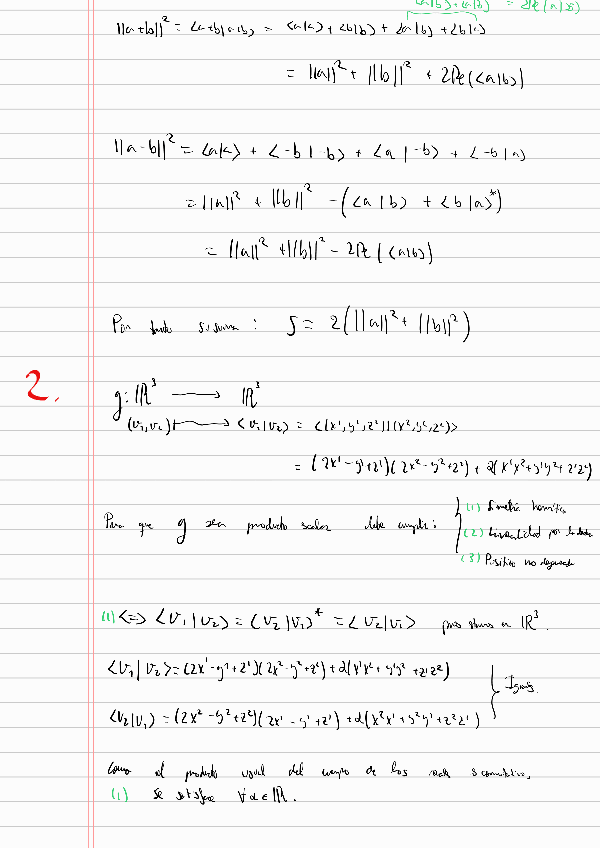 ⟨a|b⟩+⟨a|b⟩* = 2Re(a|b)
||a+b||² = ⟨a+b|a+b⟩ = ⟨a|a⟩ + ⟨b|b⟩ + ⟨a|b⟩ + ⟨b|a⟩
= ||a||² + ||b||² + 2Re(⟨a|b⟩)
||a-b||² = ⟨a|a⟩ + ⟨-b|-b⟩ + ⟨a|-b⟩ + ⟨-b|a⟩
= ||a||² + ||b||² - (⟨a|b⟩ + ⟨b|a⟩*)
= ||a||² + ||b||² - 2Re(⟨a|b⟩)
Por tanto su suma: S = 2(||a||² + ||b||²)
2.
g: ℝ³ → ℝ³
(v₁,v₂) ↦ ⟨v₁|v₂⟩ = ⟨(x¹,y¹,z¹)|(x²,y²,z²)⟩
= (2x¹-y¹+z¹)(2x²-y²+z²) + α(x¹x²+y¹y²+z¹z²)
Para que g sea producto escalar debe cumplir:
(1) Simetría hermítica
(2) Linealidad por la dcha
(3) Positivo no degenerado
(1) ⟺ ⟨v₁|v₂⟩ = ⟨v₂|v₁⟩* = ⟨v₂|v₁⟩ pues stamos en ℝ³.
⟨v₁|v₂⟩ = (2x¹-y¹+z¹)(2x²-y²+z²) + α(x¹x²+y¹y²+z¹z²)
Iguales
⟨v₂|v₁⟩ = (2x²-y²+z²)(2x¹-y¹+z¹) + α(x²x¹+y²y¹+z²z¹)
Como el producto usual del cuerpo de los reales es conmutativo,
(1) se satisface ∀α∈ℝ.